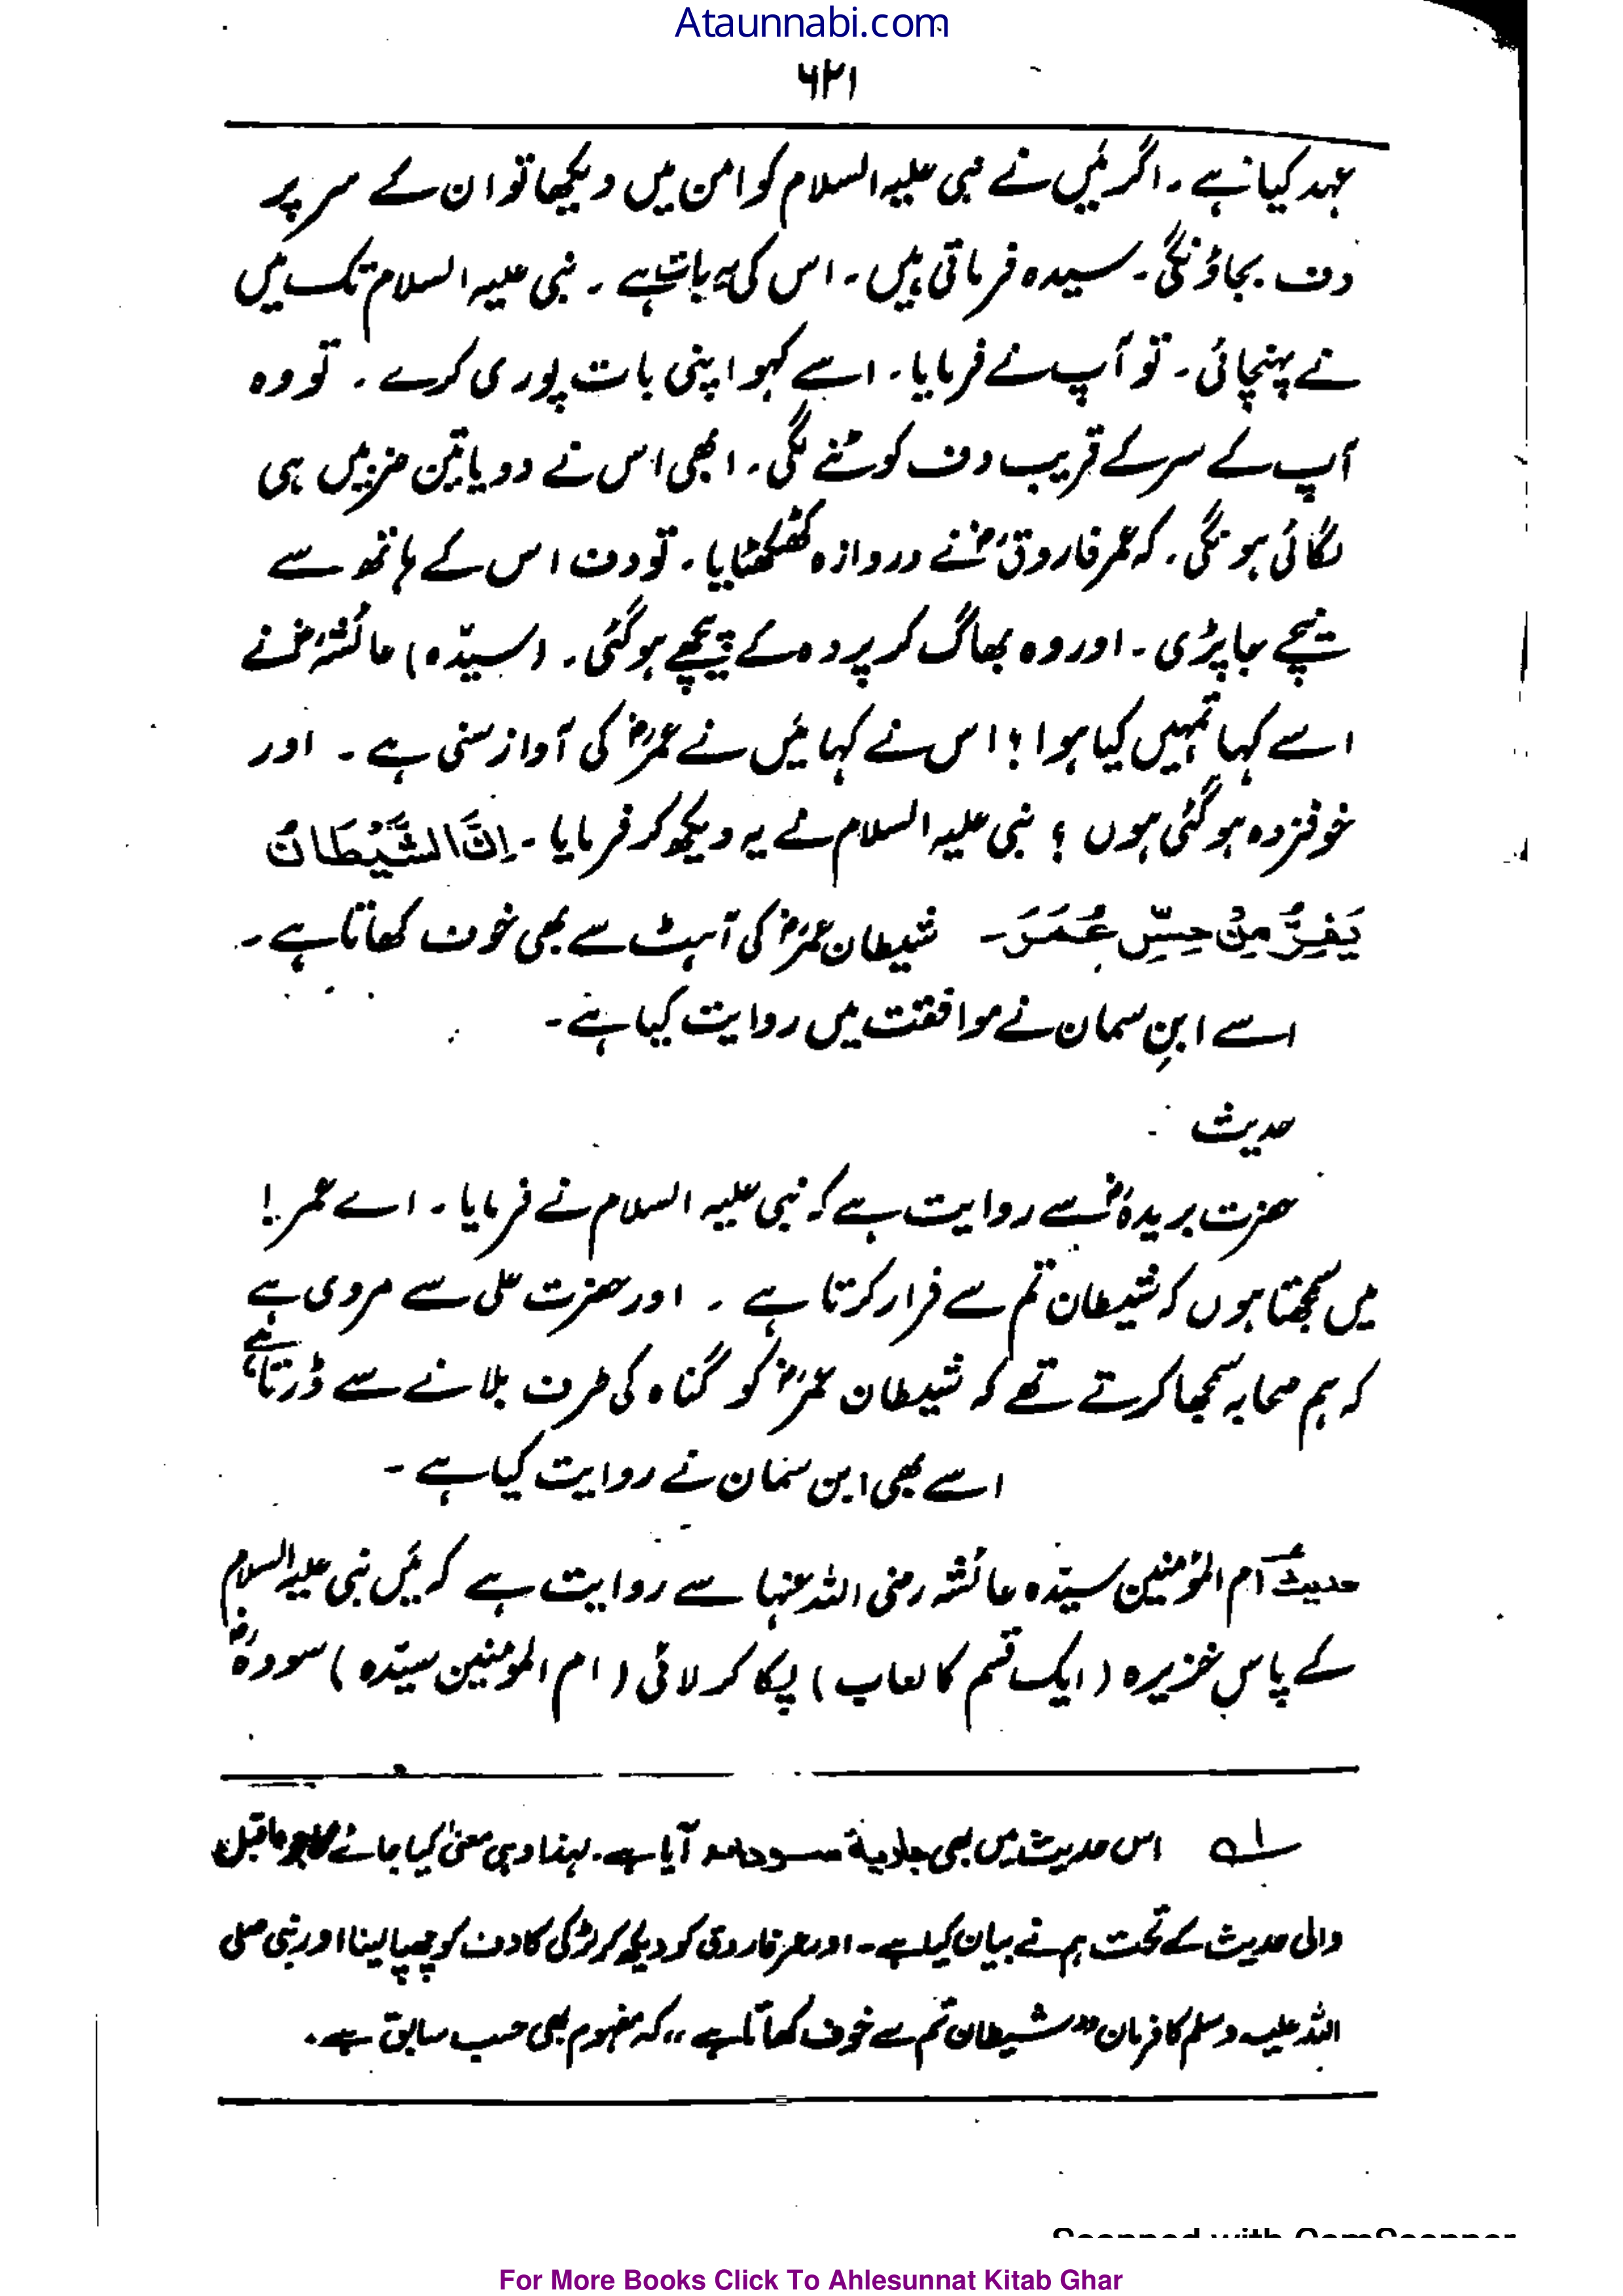 Ataunnabi.com
۶۲۱
عہد کیا ہے ۔ اگر میں نے نبی علیہ السلام کو امن میں دیکھا تو ان کے سر پر
دف بجاؤنگی ۔ سیدہ فرماتی ہیں ۔ اس کی یہ بات ہے ۔ نبی علیہ السلام تک میں
نے پہنچائی ۔ تو آپ نے فرمایا ۔ اسے کہو اپنی بات پوری کرے ۔ تو وہ
آپ کے سر کے قریب دف کوٹنے لگی ۔ ابھی اس نے دو یا تین ضربیں ہی
لگائی ہونگی ۔ کہ عمر فاروقؓ نے دروازہ کھٹکھٹایا ۔ تو دف اس کے ہاتھ سے
نیچے جا پڑی ۔ اور وہ بھاگ کر پردہ کے پیچھے ہو گئی ۔ (سیدّہ) عائشہؓ نے
اسے کہا تمہیں کیا ہوا ؟ اس نے کہا میں نے عمرؓ کی آواز سنی ہے ۔ اور
خوفزدہ ہو گئی ہوں ؟ نبی علیہ السلام نے یہ دیکھ کر فرمایا ۔ اِنَّ الشَّیْطَانَ
یَفِرُّ مِنْ حِسِّ عُمَرَ ۔ شیطان عمرؓ کی آہٹ سے بھی خوف کھاتا ہے ۔
اسے ابنِ سمان نے موافقت میں روایت کیا ہے ۔
حدیث :
حضرت بریدہؓ سے روایت ہے کہ نبی علیہ السلام نے فرمایا ۔ اے عمر !
میں سمجھتا ہوں کہ شیطان تم سے فرار کرتا ہے ۔ اور حضرت علی سے مروی ہے
کہ ہم صحابہ سمجھا کرتے تھے کہ شیطان عمرؓ کو گناہ کی طرف بلانے سے ڈرتا ہے
اسے بھی ابن سمان نے روایت کیا ہے ۔
حدیث ام المؤمنین سیّدہ عائشہ رضی اللہ عنہا سے روایت ہے کہ میں نبی علیہ السلام
کے پاس خزیرہ (ایک قسم کا لعاب) پکا کر لائی (ام المومنین سیّدہ) سودہؓ
لہ اس حدیث میں بھی جاریة سوداء آیا ہے ۔ لہٰذا وہی معنیٰ کیا جائے گا جو ماقبل
والی حدیث کے تحت ہم نے بیان کیا ہے ۔ اور عمر فاروق کو دیکھ کر لڑکی کا دف کو چھپا لینا اور نبی صلی
اللہ علیہ وسلم کا فرمان ”شیطان تم سے خوف کھاتا ہے“ کہ مفہوم بھی حسب سابق ہے ۔
Scanned with CamScanner
For More Books Click To Ahlesunnat Kitab Ghar